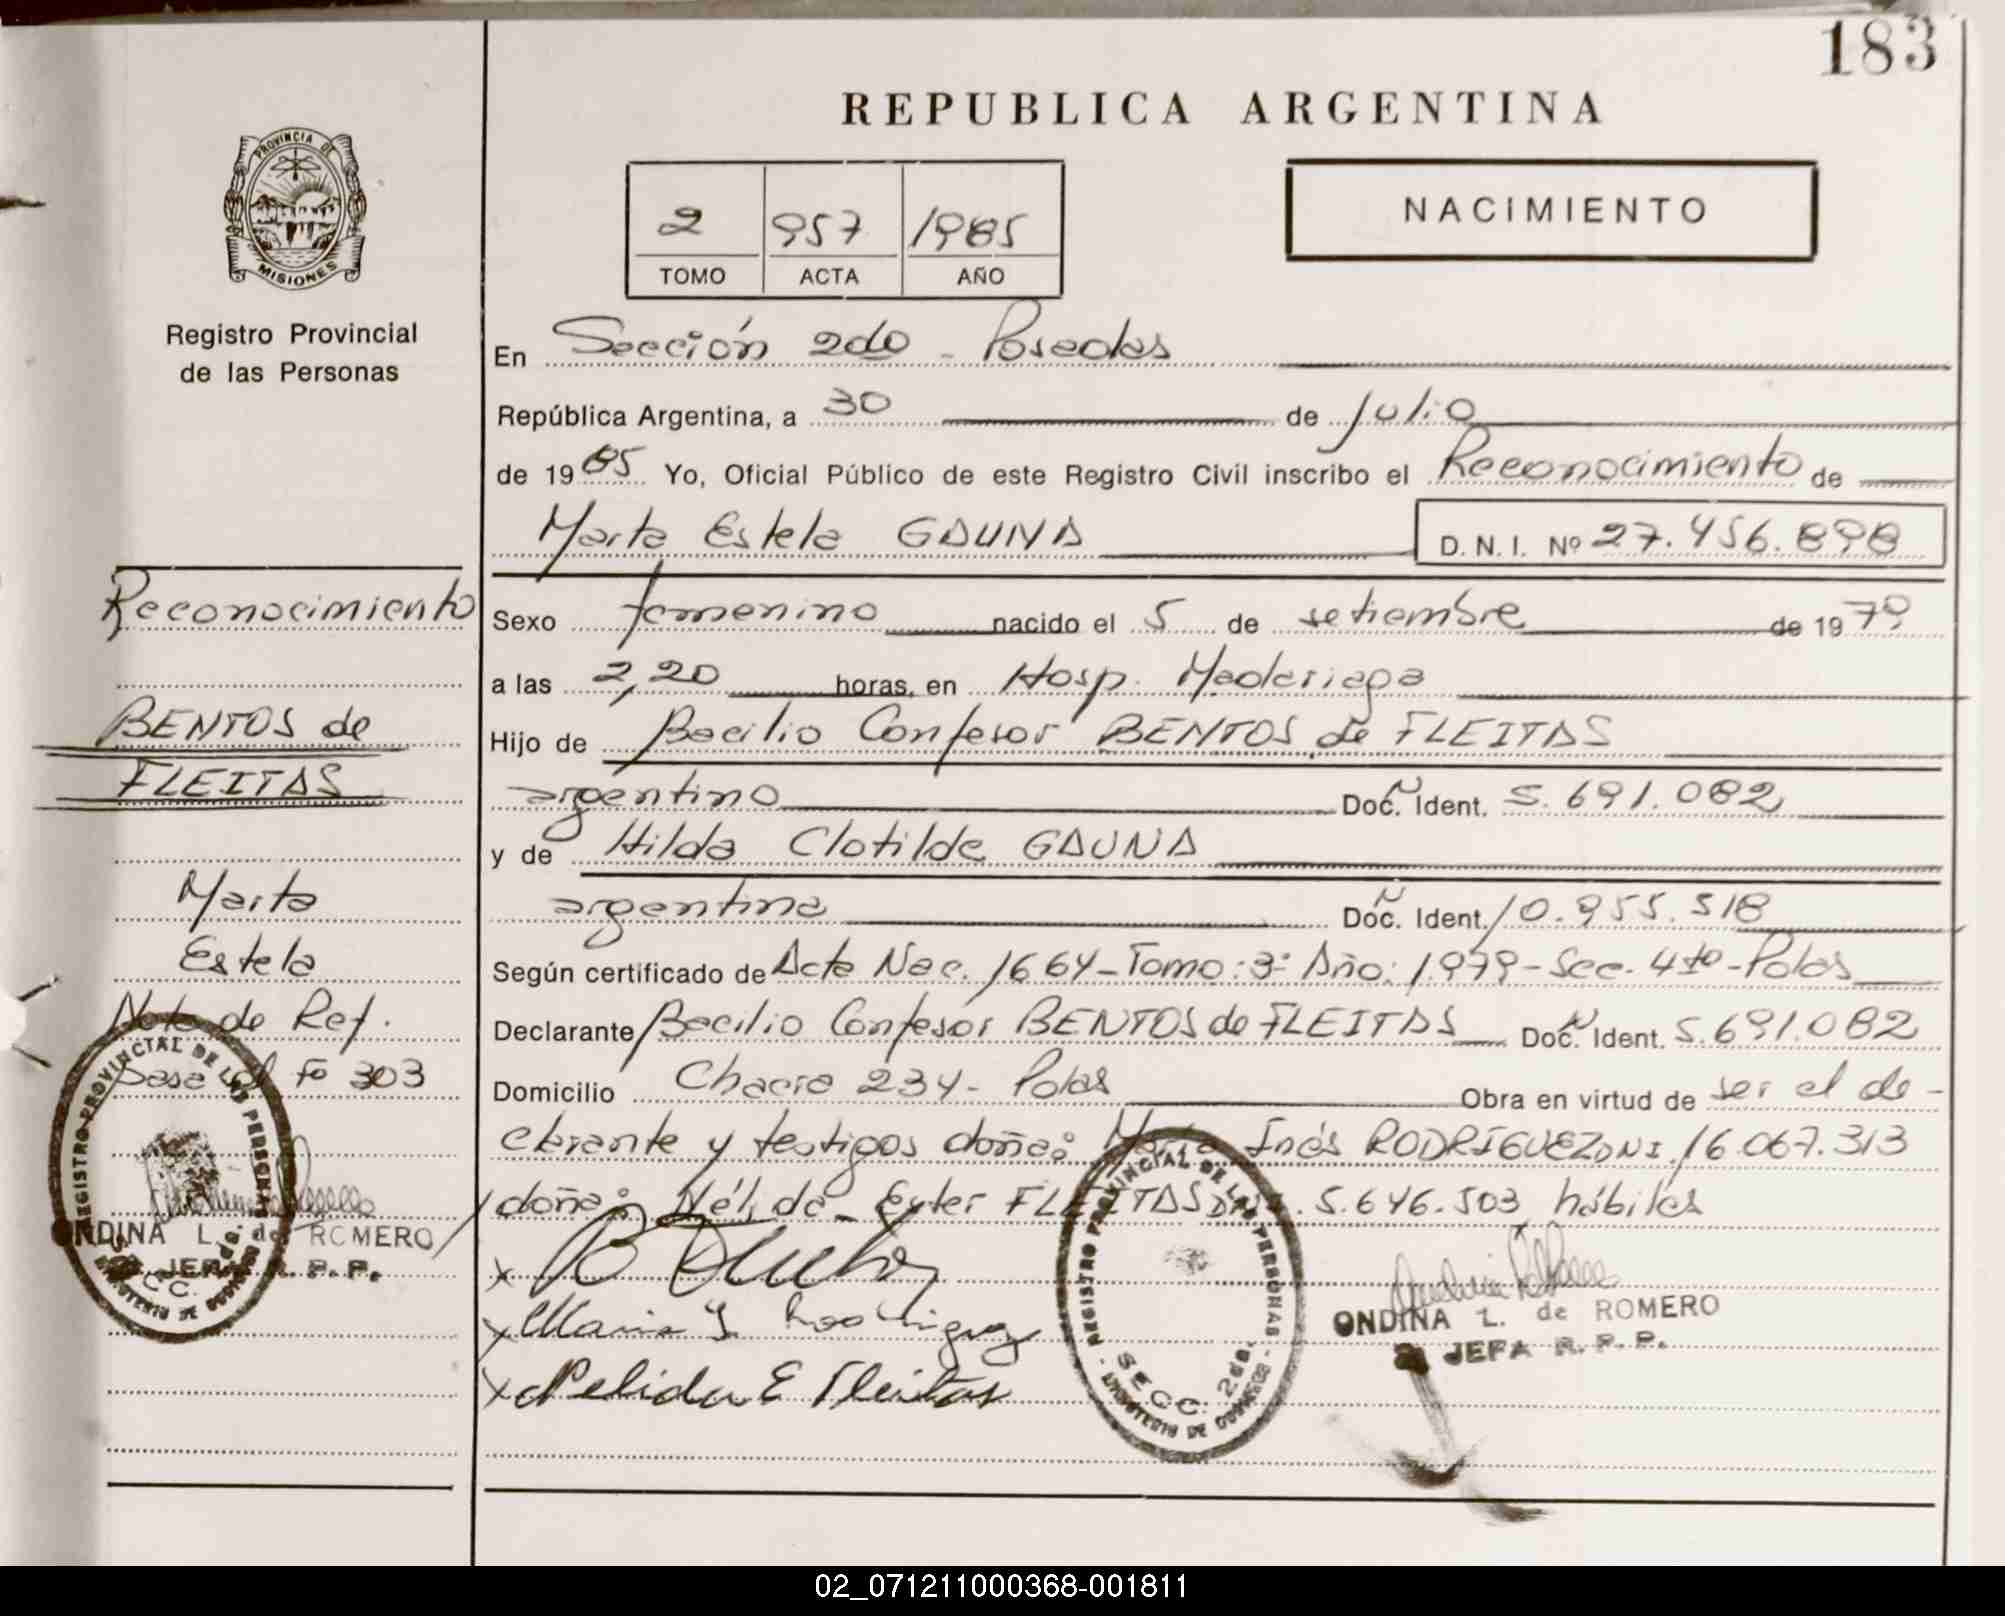 183
REPUBLICA ARGENTINA
PROVINCIA DE
MISIONES
Registro Provincial
de las Personas
2 957 1985
TOMO ACTA AÑO
NACIMIENTO
En Sección 2da - Posadas
República Argentina, a 30 de julio
de 1985 Yo, Oficial Público de este Registro Civil inscribo el Reconocimiento de
Marta Estela GAUNA D.N.I. Nº 27.456.898
Sexo femenino nacido el 5 de setiembre de 1979
a las 2,20 horas, en Hosp. Madariaga
Hijo de Bacilio Confesor BENTOS de FLEITAS
argentino Doc. Ident. 5.691.082
y de Hilda Clotilde GAUNA
argentina Doc. Ident. 10.955.518
Según certificado de Acta Nac. 1664 - Tomo: 3º Año: 1979 - Sec. 4ta - Pdas
Declarante Bacilio Confesor BENTOS de FLEITAS Doc. Ident. 5.691.082
Domicilio Chacra 234 - Pdas Obra en virtud de ser el de-
clarante y testigos doña: María Inés RODRIGUEZ DNI. 16.067.313
doña: Nélida Ester FLEITAS 5.646.503 hábiles
x
x Maria I. Rodriguez
x Nelida E Fleitas
REGISTRO PROVINCIAL DE LAS PERSONAS
SECC. 2da.
MINISTERIO DE GOBIERNO
ONDINA L. de ROMERO
JEFA R. P. P.
Reconocimiento
BENTOS de
FLEITAS
Marta
Estela
Nota de Ref.
Pasa al Fº 303
REGISTRO PROVINCIAL DE LAS PERSONAS
SECC. 2da.
MINISTERIO DE GOBIERNO
ONDINA L. de ROMERO
JEFA R. P. P.
02_071211000368-001811